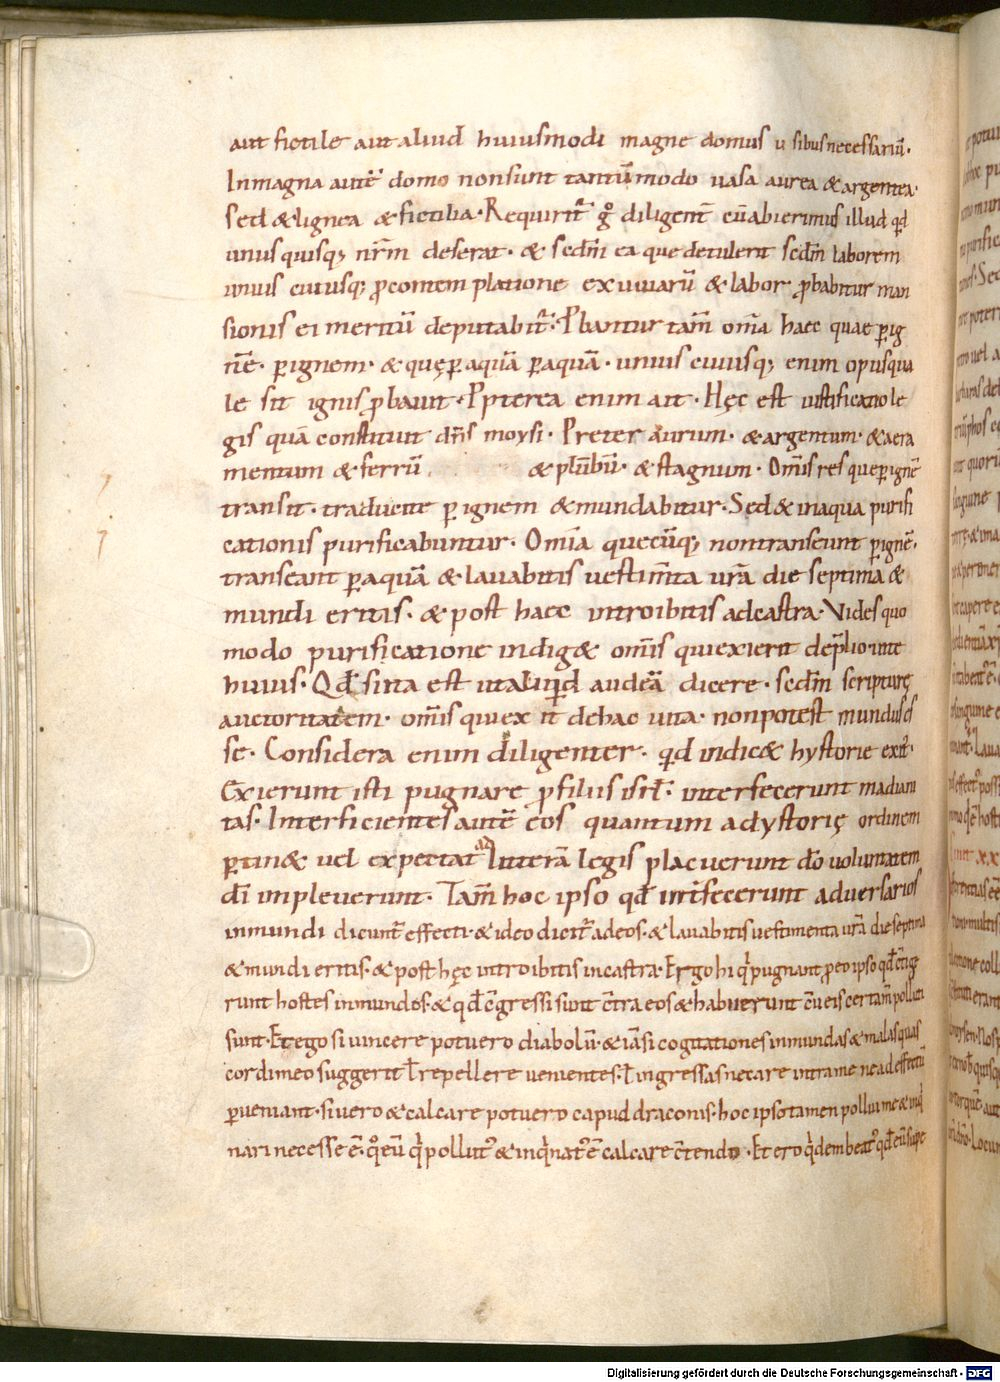 aut fictile aut aliud huiusmodi magne domus usibus necessariū.
In magna autē domo non sunt tantūmodo uasa aurea & argentea.
sed & lignea & fictilia. Requirit᷑ gͦ diligent̄ cū abierimus illud qd̄
unusquisq; nr̄m deferat. & scdm̄ ea que detulerit scdm̄ laborem
unius cuiusq; ꝓ contemplatione exuuiarū & labor ꝓbabitur man
sionis ei meritū deputabit᷑. Ꝓbantur tam̄ om̄a haec quae ꝑ ig
nē. ꝑ ignem. & quę ꝑ aquā ꝑ aquā. unius cuiusq; enim opus qua
le sit ignis ꝓbauit. Ꝓpterea enim ait. Hęc est iustificatio le
gis quā constituit dn̄s moysi. Preter aurum. & argentum. & aera
mentum & ferrū & plūbū. & stagnum. Om̄is res que ꝑ ignē
transit. traducite ꝑ ignem & mundabitur. Sed & in aqua purifi
cationis purificabuntur. Om̄ia quecūq; non transeunt ꝑ ignē.
transeant ꝑ aquā & lauabitis uestim̄ta ur̄a die septima &
mundi eritis. & post haec introibitis ad castra. Vides quo
modo purificatione indig& om̄is qui exierit de p̄lio inte
huius. Qd̄ si ita est ut aliquid audeā dicere. scdm̄ scripturę
auctoritatem. om̄is qui exit de hac uita. non potest mundus es
se. Considera enim diligenter. qd̄ indic& hystorie exit᷑.
Exierunt isti pugnare ꝓ filiis isrl̄. interfecerunt madiani
tas. Interficientes autē eos quantum ad ystorię ordinem
ꝑtin& uel expectat ad litterā legis placuerunt dō uoluntatem
dī impleuerunt. Tam̄ hoc ipso qd̄ int̄fecerunt aduersarios
inmundi dicunt᷑ effecti. & ideo dicit᷑ ad eos. & lauabitis uestimenta ur̄a die septima
& mundi eritis. & post hęc introibitis in castra. Ergo hi qui pugnant ꝓ eo ipso qd̄ c̄tige
runt hostes inmundos. & qd̄ c̄gressi sunt c̄tra eos & habuerunt cū eis certam̄ polluti
sunt. Et ego si uincere potuero diabolū. & iā si cogitationes inmundas & malas quas
cordi meo suggerit ł repellere uenientes. ł ingressas necare intra me ne ad effectū
ꝑueniant. si uero & calcare potuero capud draconis. hoc ipso tamen pollui me & inqͥ
nari necesse ē. qͦ eū qui pollutꝰ & inqͥnatꝰ ē calcare c̄tendo. Et ero qͥdem beatꝰ qd̄ eū supe
Digitalisierung gefördert durch die Deutsche Forschungsgemeinschaft - DFG